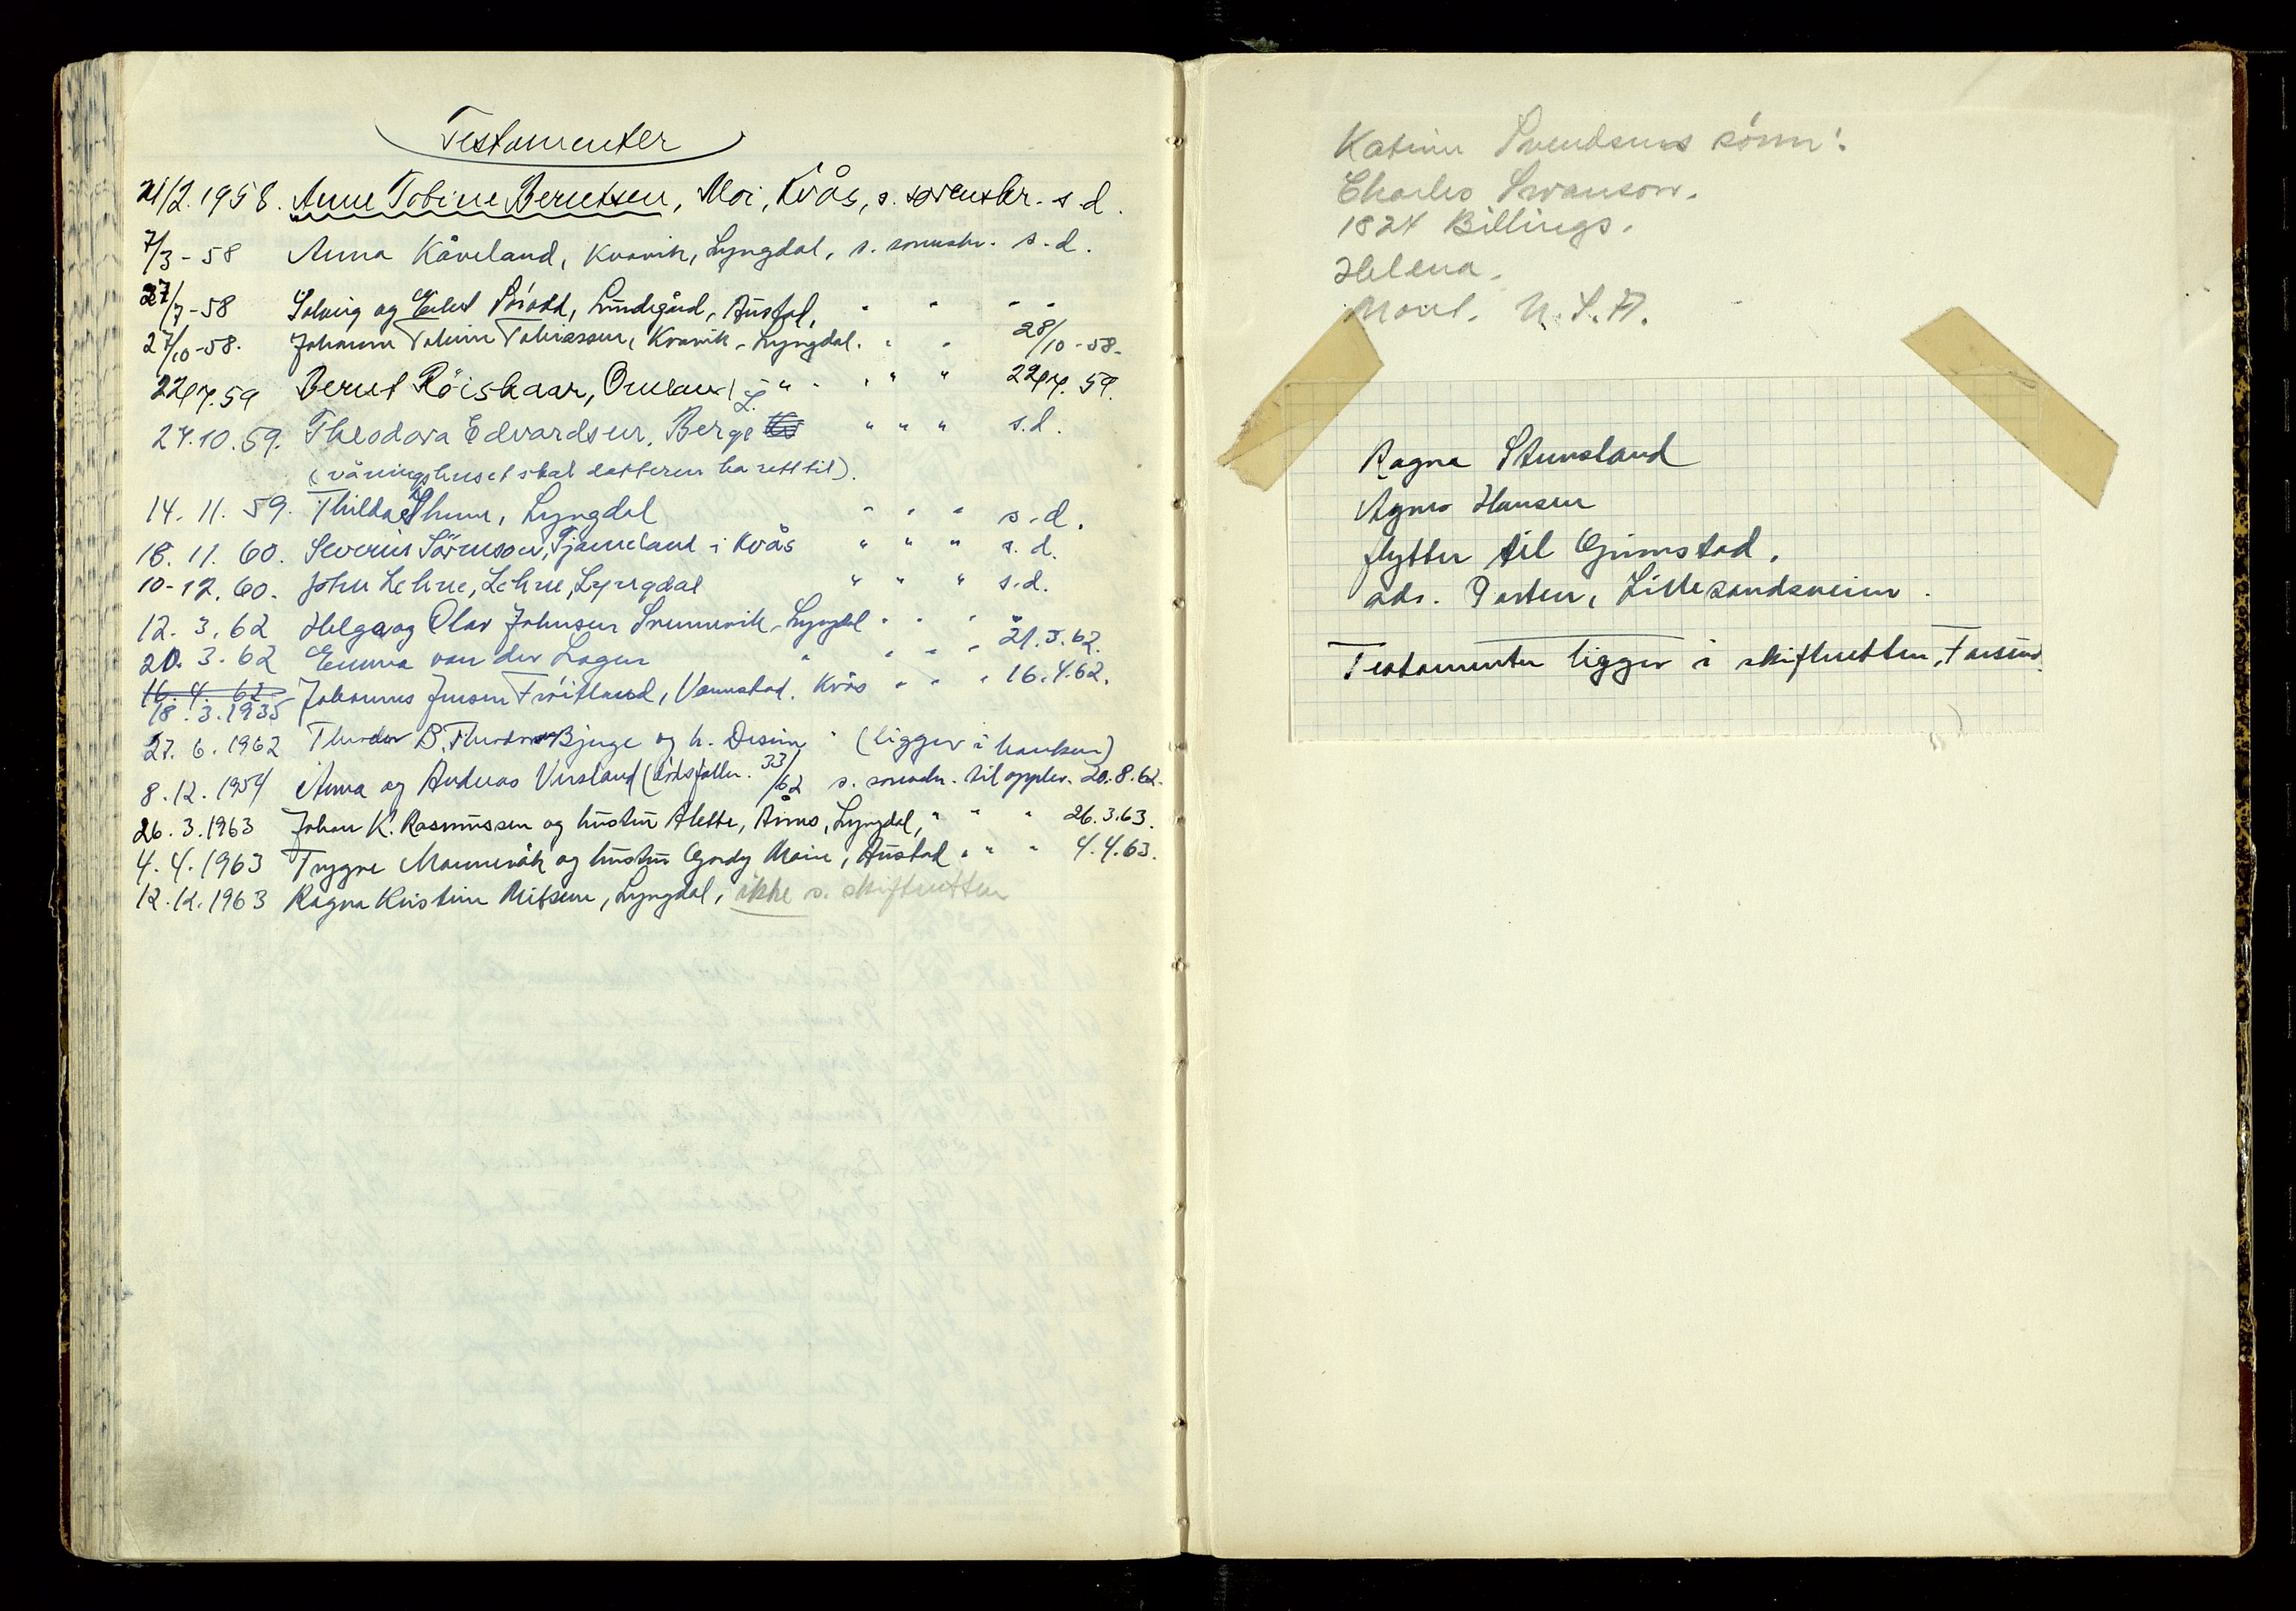 Testamenter
21/2.1958. Anne Tobine Berntsen, Moi, Kvås, s. sorenskr. s.d.
7/3-58 Anna Kåveland, Kvavik, Lyngdal, s. sorenskr. s.d.
27/7-58 Solveig og Lindegård, Austad, " " " "
27/10-58. Johanne Tobine Tobiassen, Kvavik, Lyngdal. " " 28/10-58.
22/4.59 Bernt Röiskaar, L. " " " 22/4.59.
24.10.59. Theodora Edvardsen, Berge " " " s.d.
(våningshuset skal datteren ha rett til).
14.11.59. Thilda Lyngdal " " " s.d.
18.11.60. Severin Sörensen, Tjomeland i Kvås " " " s.d.
10-12.60. John Lehne, Lehne, Lyngdal " " " s.d.
12.3.62 Helga og Olav Johnsen Svennevik, Lyngdal " " " "
20.3.62 Emma van der Lagen " " " " 21.3.62.
16.4.62
18.3.1935 Johannes Jensen Fröitland, Vemestad, Kvås " " " 16.4.62.
27.6.1962 Theodor B. Bjuge og h. " (ligger i banken)
8.12.1954 Anna og Andreas Versland (dödsfaller. 33/62 s. sorenskr. til opplev. 20.8.62.
26.3.1963 Johan K. Rasmussen og hustru Alette, Åsnes, Lyngdal, " " " 26.3.63.
4.4.1963 Trygve Mannevåk og hustru Gordy Marie, Austad " " " 4.4.63.
12.12.1963 Ragna Kristine Nilsen, Lyngdal, ikke s. skifteretten
Katrine Svendsens sønn:
Charles Swanson.
1824 Billings.
Helena.
Mont. U.S.A.
Ragna Stensland
Agnes Hansen
flytter til Grimstad.
adr. Porten, Lillesandsveien.
Testamenter ligger i skifteretten, Farsund.